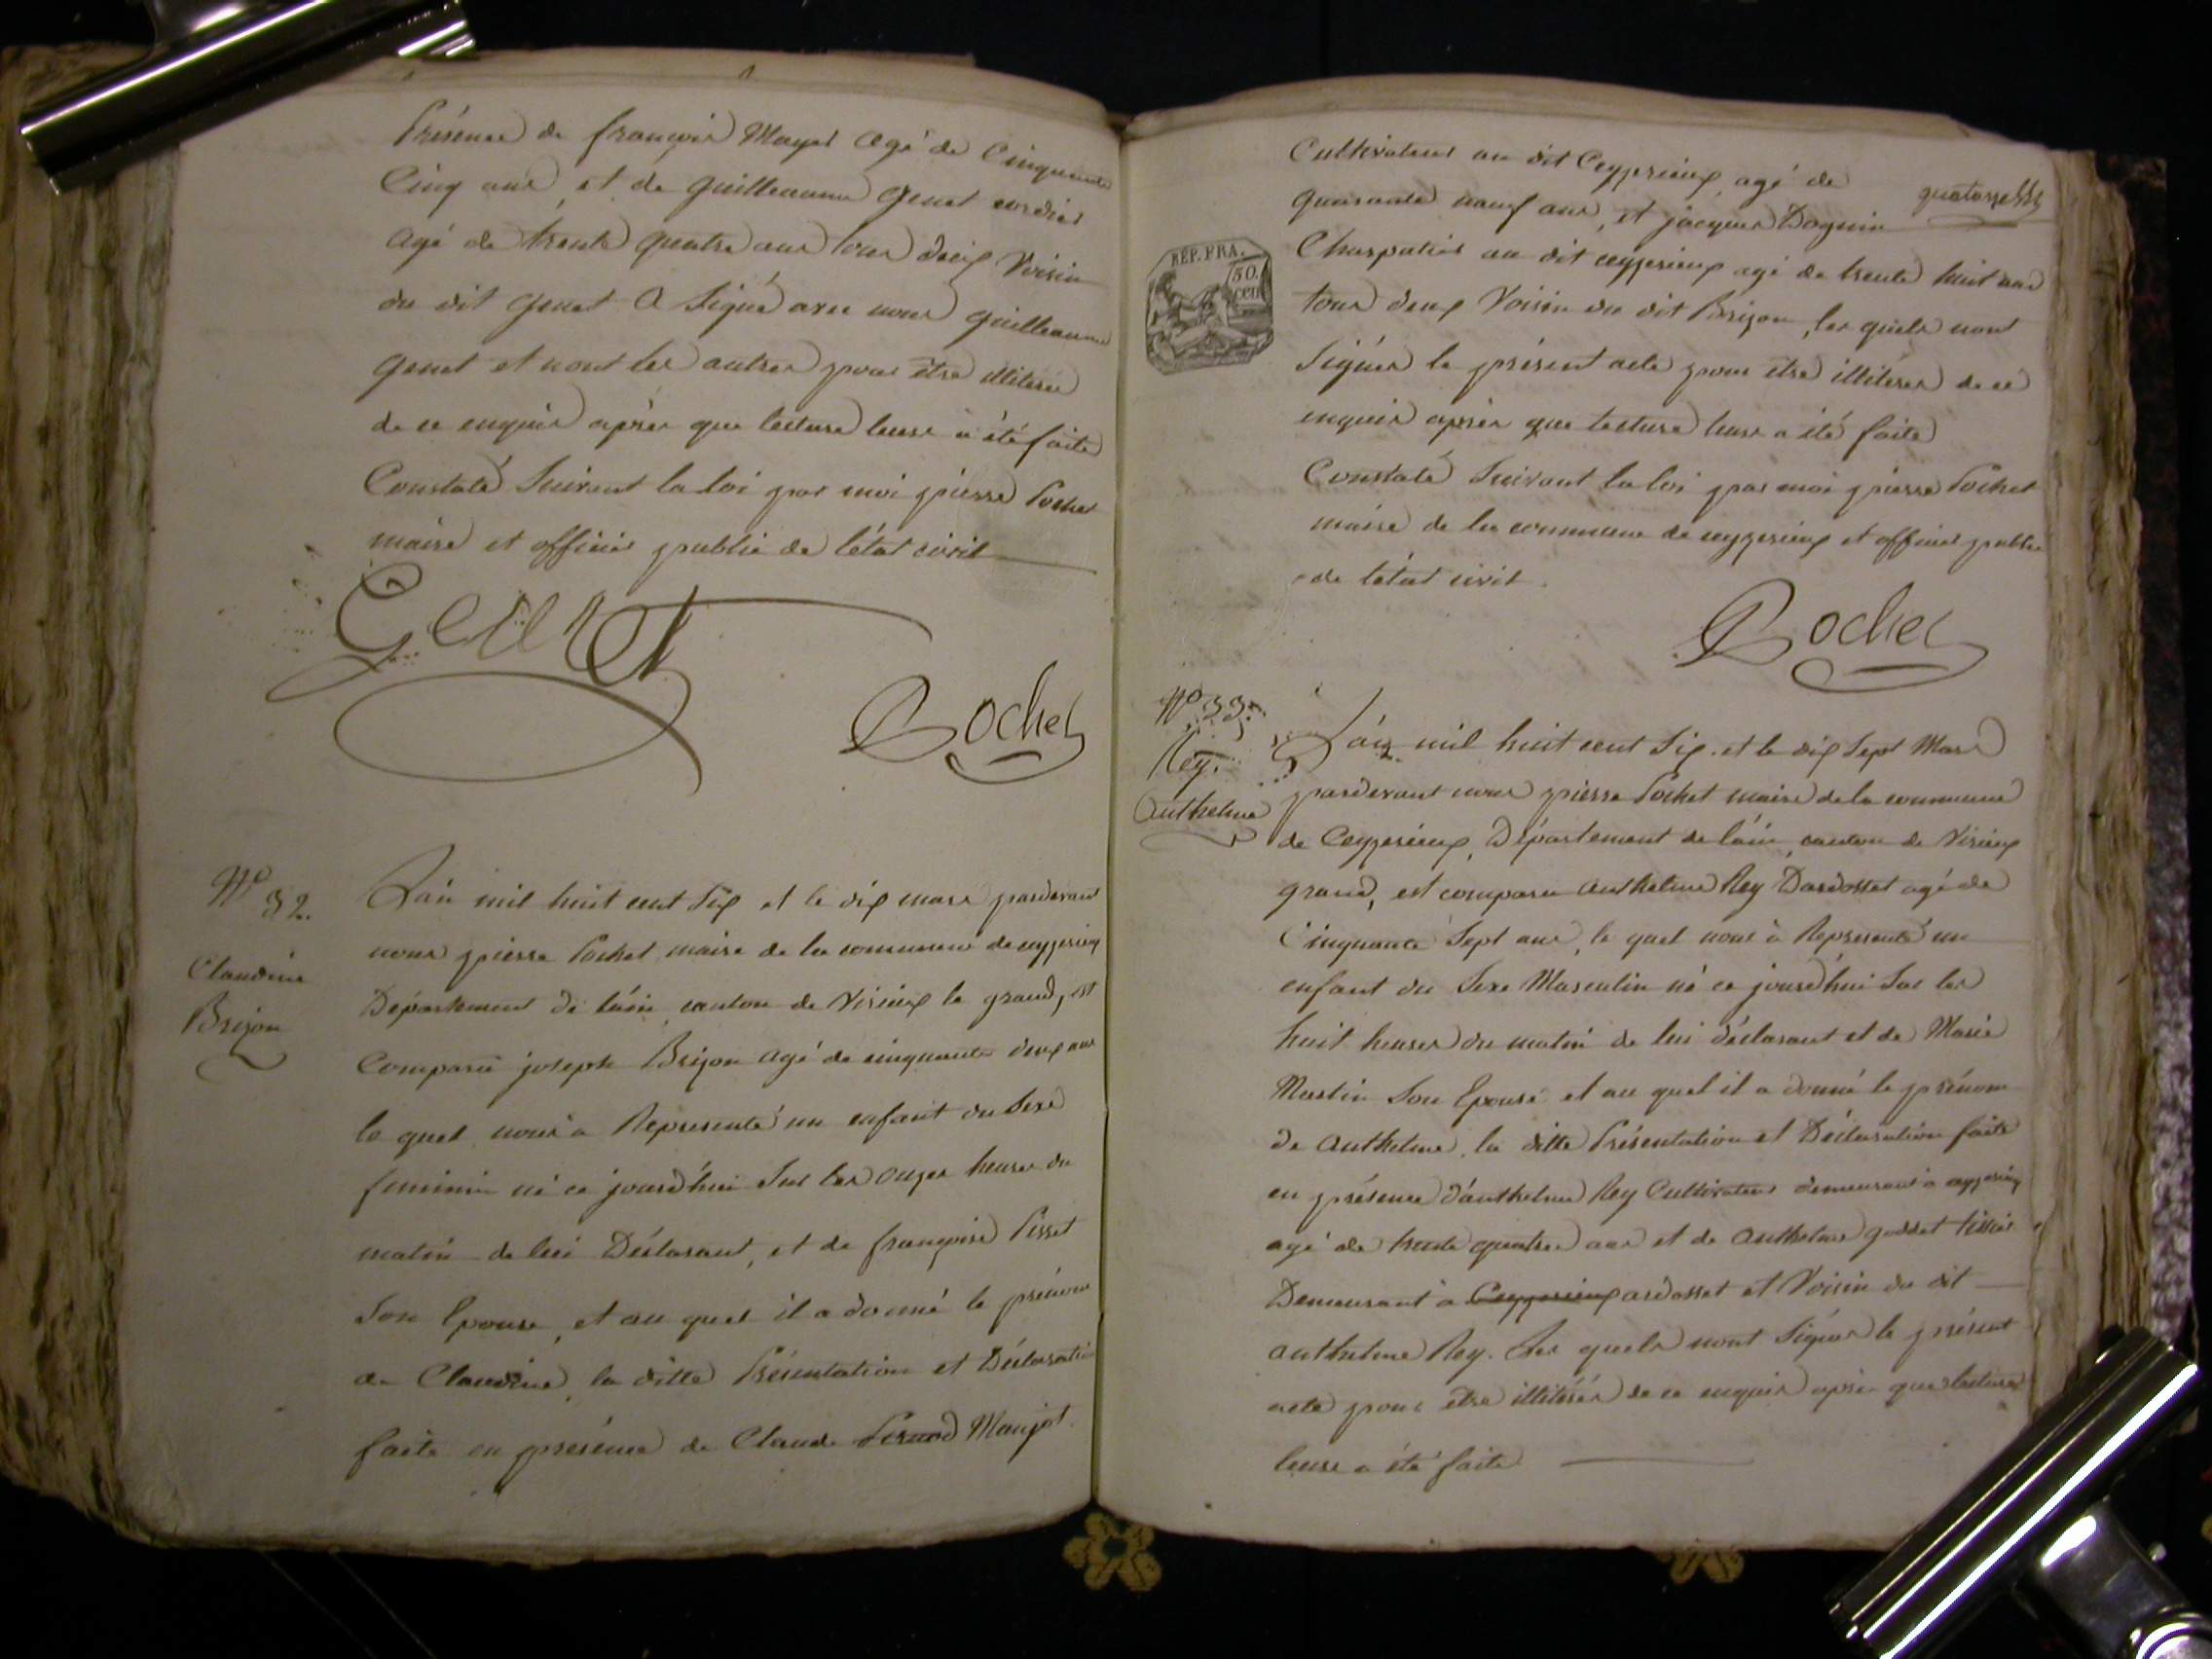 Présence de françois Mayet agé de Cinquante
Cinq ans, et de guilleaume genet cordier
agé de trente quatre ans tous deux Voisin
du dit genet a Signé avec nous guilleaume
genet et nont les autres pour être illiteré
de ce enquis après que lecture leur a été faite
Constaté Suivant la loi par moi pierre Pochet
maire et officier public de l'état civil
Genet
Pochet
N° 32.
Claudine
Brizon
L'an mil huit cent Six et le dix mars pardevant
nous pierre Pochet maire de la commune de ceyzerieux
Département de l'ain canton de Virieux le grand, est
Comparu joseph Brizon agé de cinquante deux ans
le quel nous a Représenté un enfant du Sexe
feminin né ce jourd'hui Sur les onzes heures du
matin de lui Déclarant, et de françoise Pisset
Son Epouse, et au quel il a donné le prénom
de Claudine, la ditte Présentation et Déclaration
faite en présence de Claude Maujot
Cultivateur au dit Ceyzerieux, agé de
quatorze
quarante neuf ans, et jacques Daguin
Charpatier au dit ceyzerieux agé de trente huit ans
RÉP. FRA.
50.
cen
tous deux Voisin du dit Brizon, les quels nont
Signés le présent acte pour être illiteres de ce
enquis après que lecture leur a été faite
Constaté Suivant la loi par moi pierre Pochet
maire de la commune de ceyzerieux et officier public
de l'état civil.
Pochet
N° 33.
Rey.
Anthelme
L'an mil huit cent Six. et le dix Sept Mars
pardevant nous pierre Pochet maire de la commune
de Ceyzerieux, Département de l'ain, canton de Virieux
grand, est comparu anthelme Rey Dardosset agé de
Cinquante Sept ans, le quel nous a Représenté un
enfant du Sexe Masculin né ce jourd'hui Sur les
huit heures du matin de lui déclarant et de Marie
Martin Son Epouse et au quel il a donné le prénom
de anthelme, la ditte Présentation et Déclaration faite
en présence d'anthelme Rey Cultivateur demeurant a ceyzerieux
agé de trente quatre ans et de anthelme goddet tissier
Demeurant a Ceyzerieux ardosset et Voisin du dit
anthelme Rey. Les quels nont Signés le présent
acte pour être illiterés de ce enquis après que lecture
leur a été faite